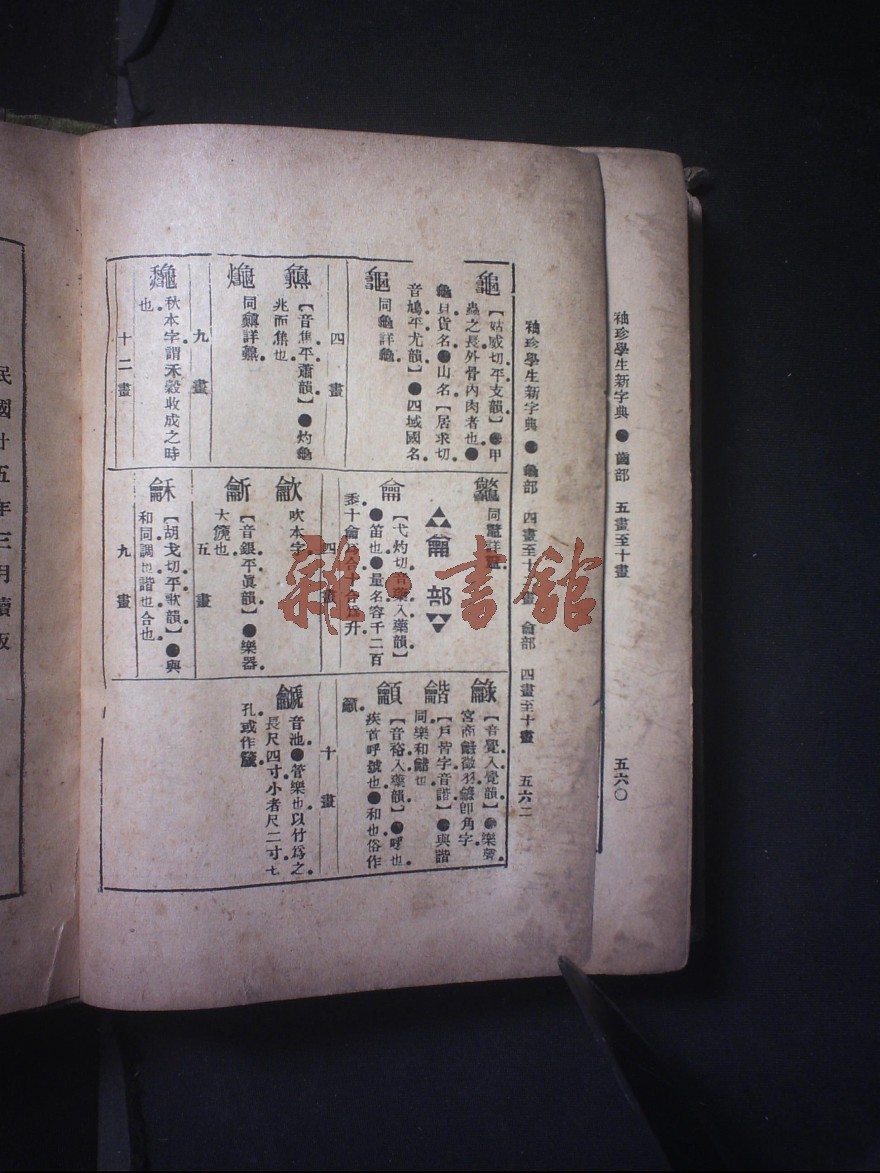 袖珍學生新字典 ● 齒部 五畫至十畫 五六〇
袖珍學生新字典 ● 龜部 四畫至十 畫 龠部 四畫至十畫 五六二
龜
【姑威切平支韻】●甲
蟲之長外骨內肉者也●
龜貝貨名●山名【居求切
音鳩平尤韻】●四域國名
同龜詳龜
四畫
【音焦平蕭韻】●灼龜
兆而焦也
九畫
龝
秋本字謂禾穀收成之時
也
十二畫
龠部
龠
【弋灼切音藥入藥韻】
●笛也●量名容千二百
黍十龠爲合十合爲升
四畫
龡
吹本字
【音銀平眞韻】●樂器
大箎也
五畫
龢
【胡戈切平歌韻】●與
和同調也諧也合也
九畫
【音覺入覺韻】●樂器
龤
【戶皆字音諧】●與諧
同樂和龤也
龥
【音裕入藥韻】●呼也
疾首呼號也●和也俗作
籲
十畫
音池●管樂也以竹爲之
長尺四寸小者尺二寸七
孔或作
民國廿五年三月續版
雜·書館